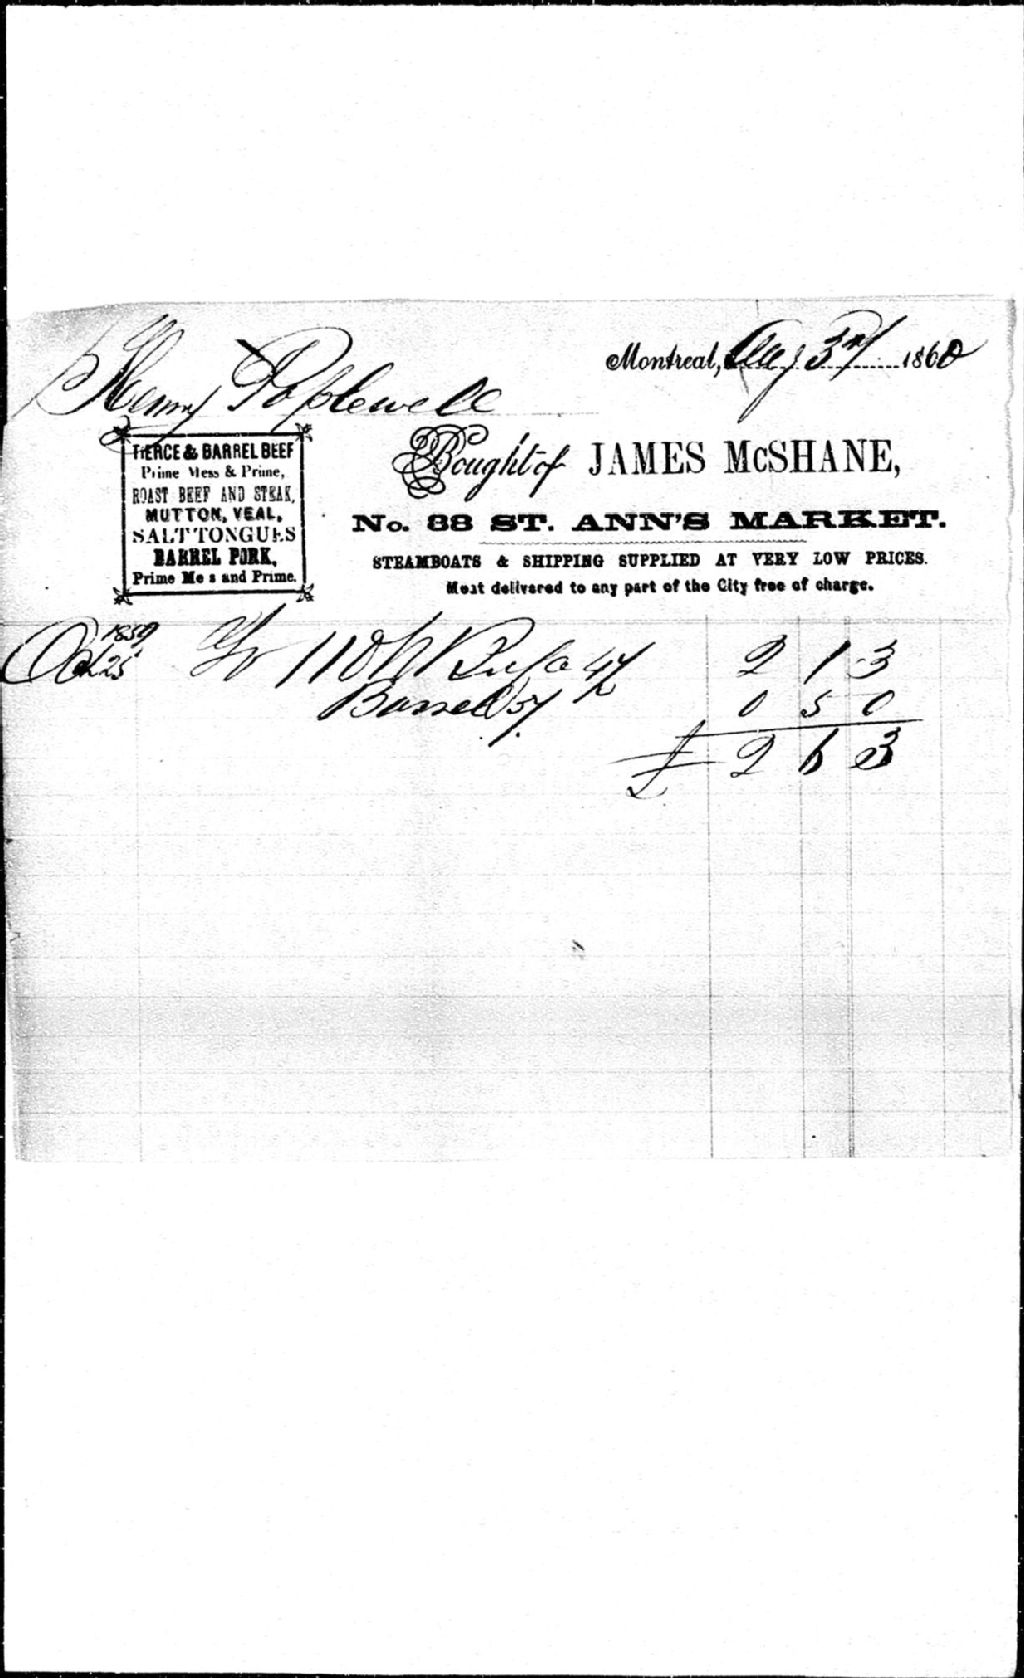 Montreal, Aug 3rd 1860
Henry Poplewell
TIERCE & BARREL BEEF
Prime Mess & Prime,
ROAST BEEF AND STEAK,
MUTTON, VEAL,
SALT TONGUES
BARREL PORK,
Prime Mess and Prime.
Bought of JAMES McSHANE,
No. 88 ST. ANN'S MARKET.
STEAMBOATS & SHIPPING SUPPLIED AT VERY LOW PRICES.
Meat delivered to any part of the City free of charge.
1859
Oct 25 To 110 lb Beef @ 2 1 3
Barrel 5/ 0 5 0
£ 2 6 3